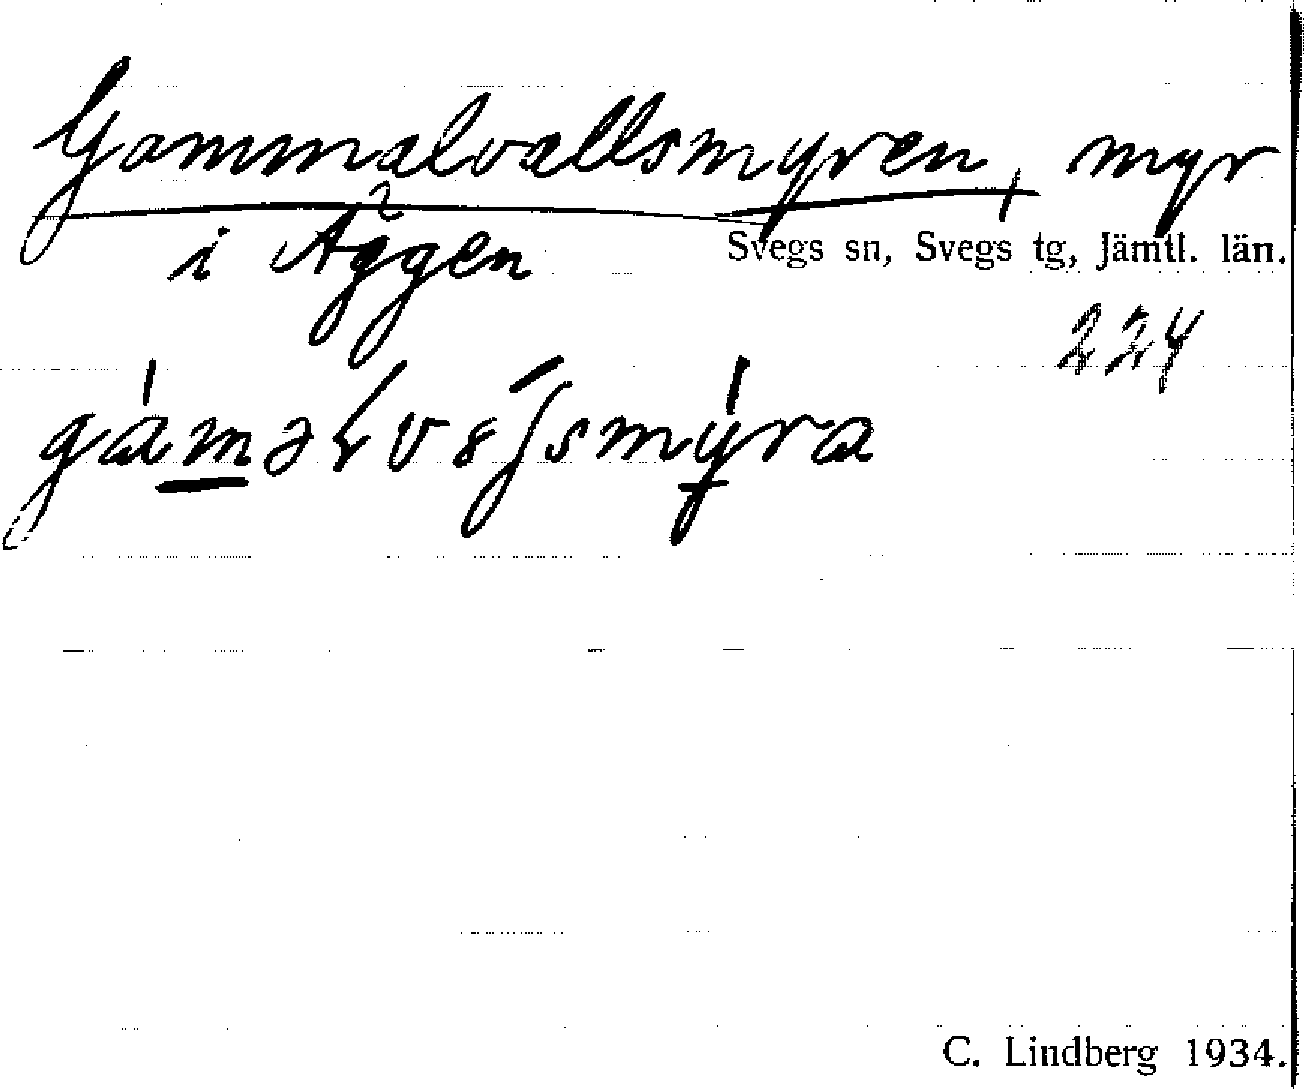 Gammalvallsmyren, myr
i Äggen
Svegs sn, Svegs tg, Jämtl. län.
224
C. Lindberg 1934.